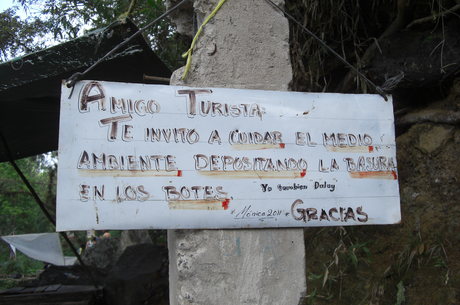 AMIGO TURISTA:
TE INVITO A CUIDAR EL MEDIO
AMBIENTE DEPOSITANDO LA BASURA
EN LOS BOTES Yo tambien
*México 2011* GRACIAS